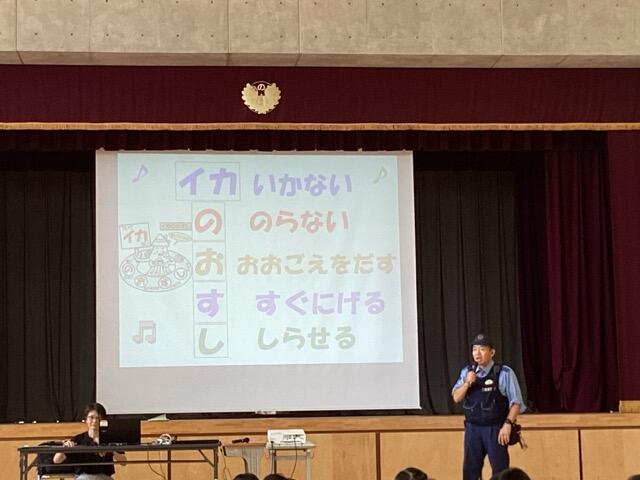 イカ いかない
の のらない
お おおごえをだす
す すぐにげる
し しらせる
イカ